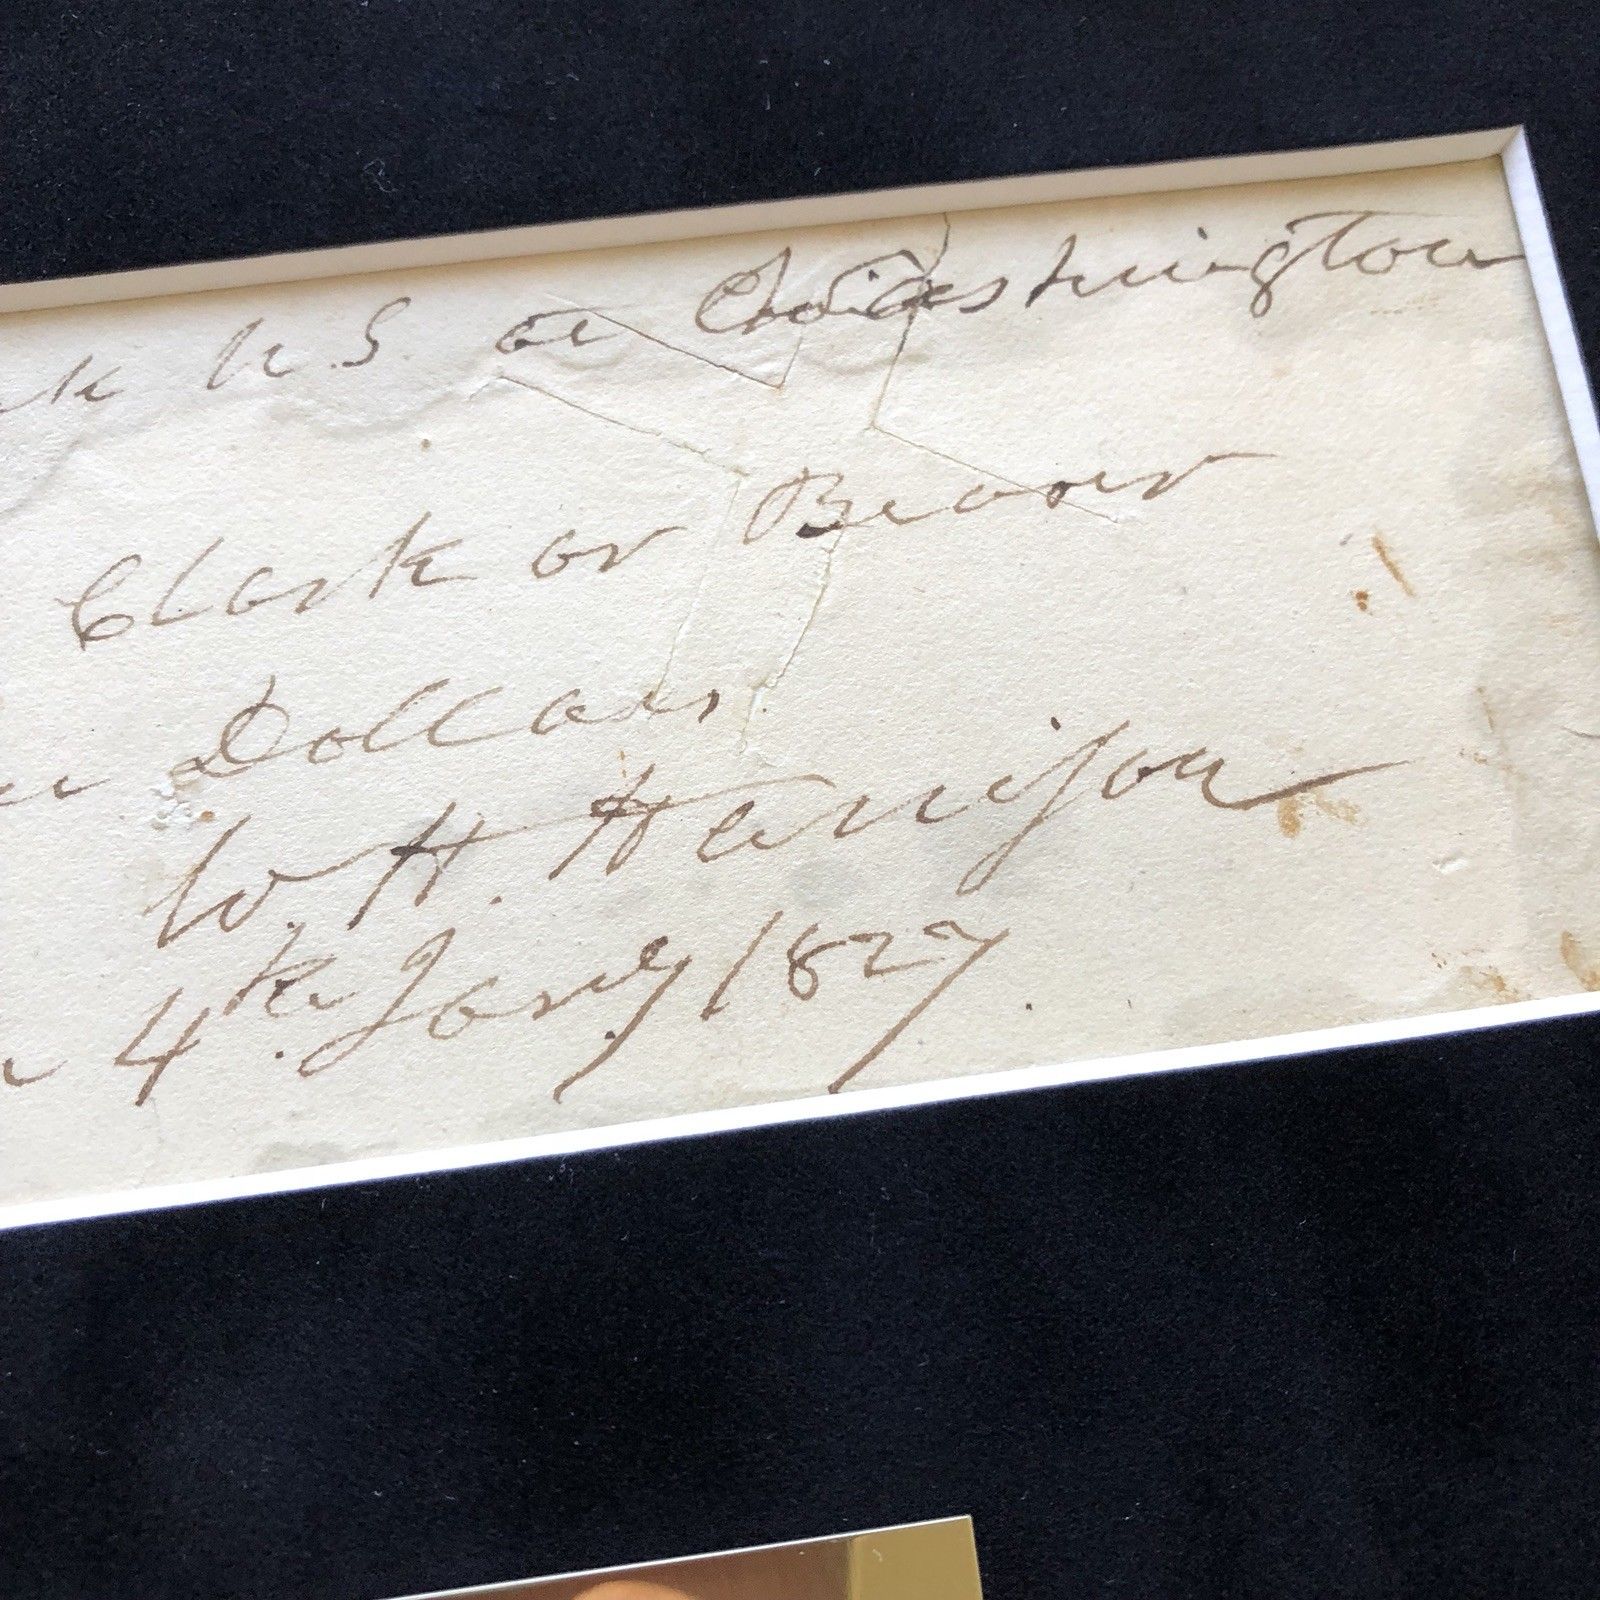 U.S. at Washington
Clark or Bearer
Dollars.
W. H. Harrison
4th. Jany. 1827.